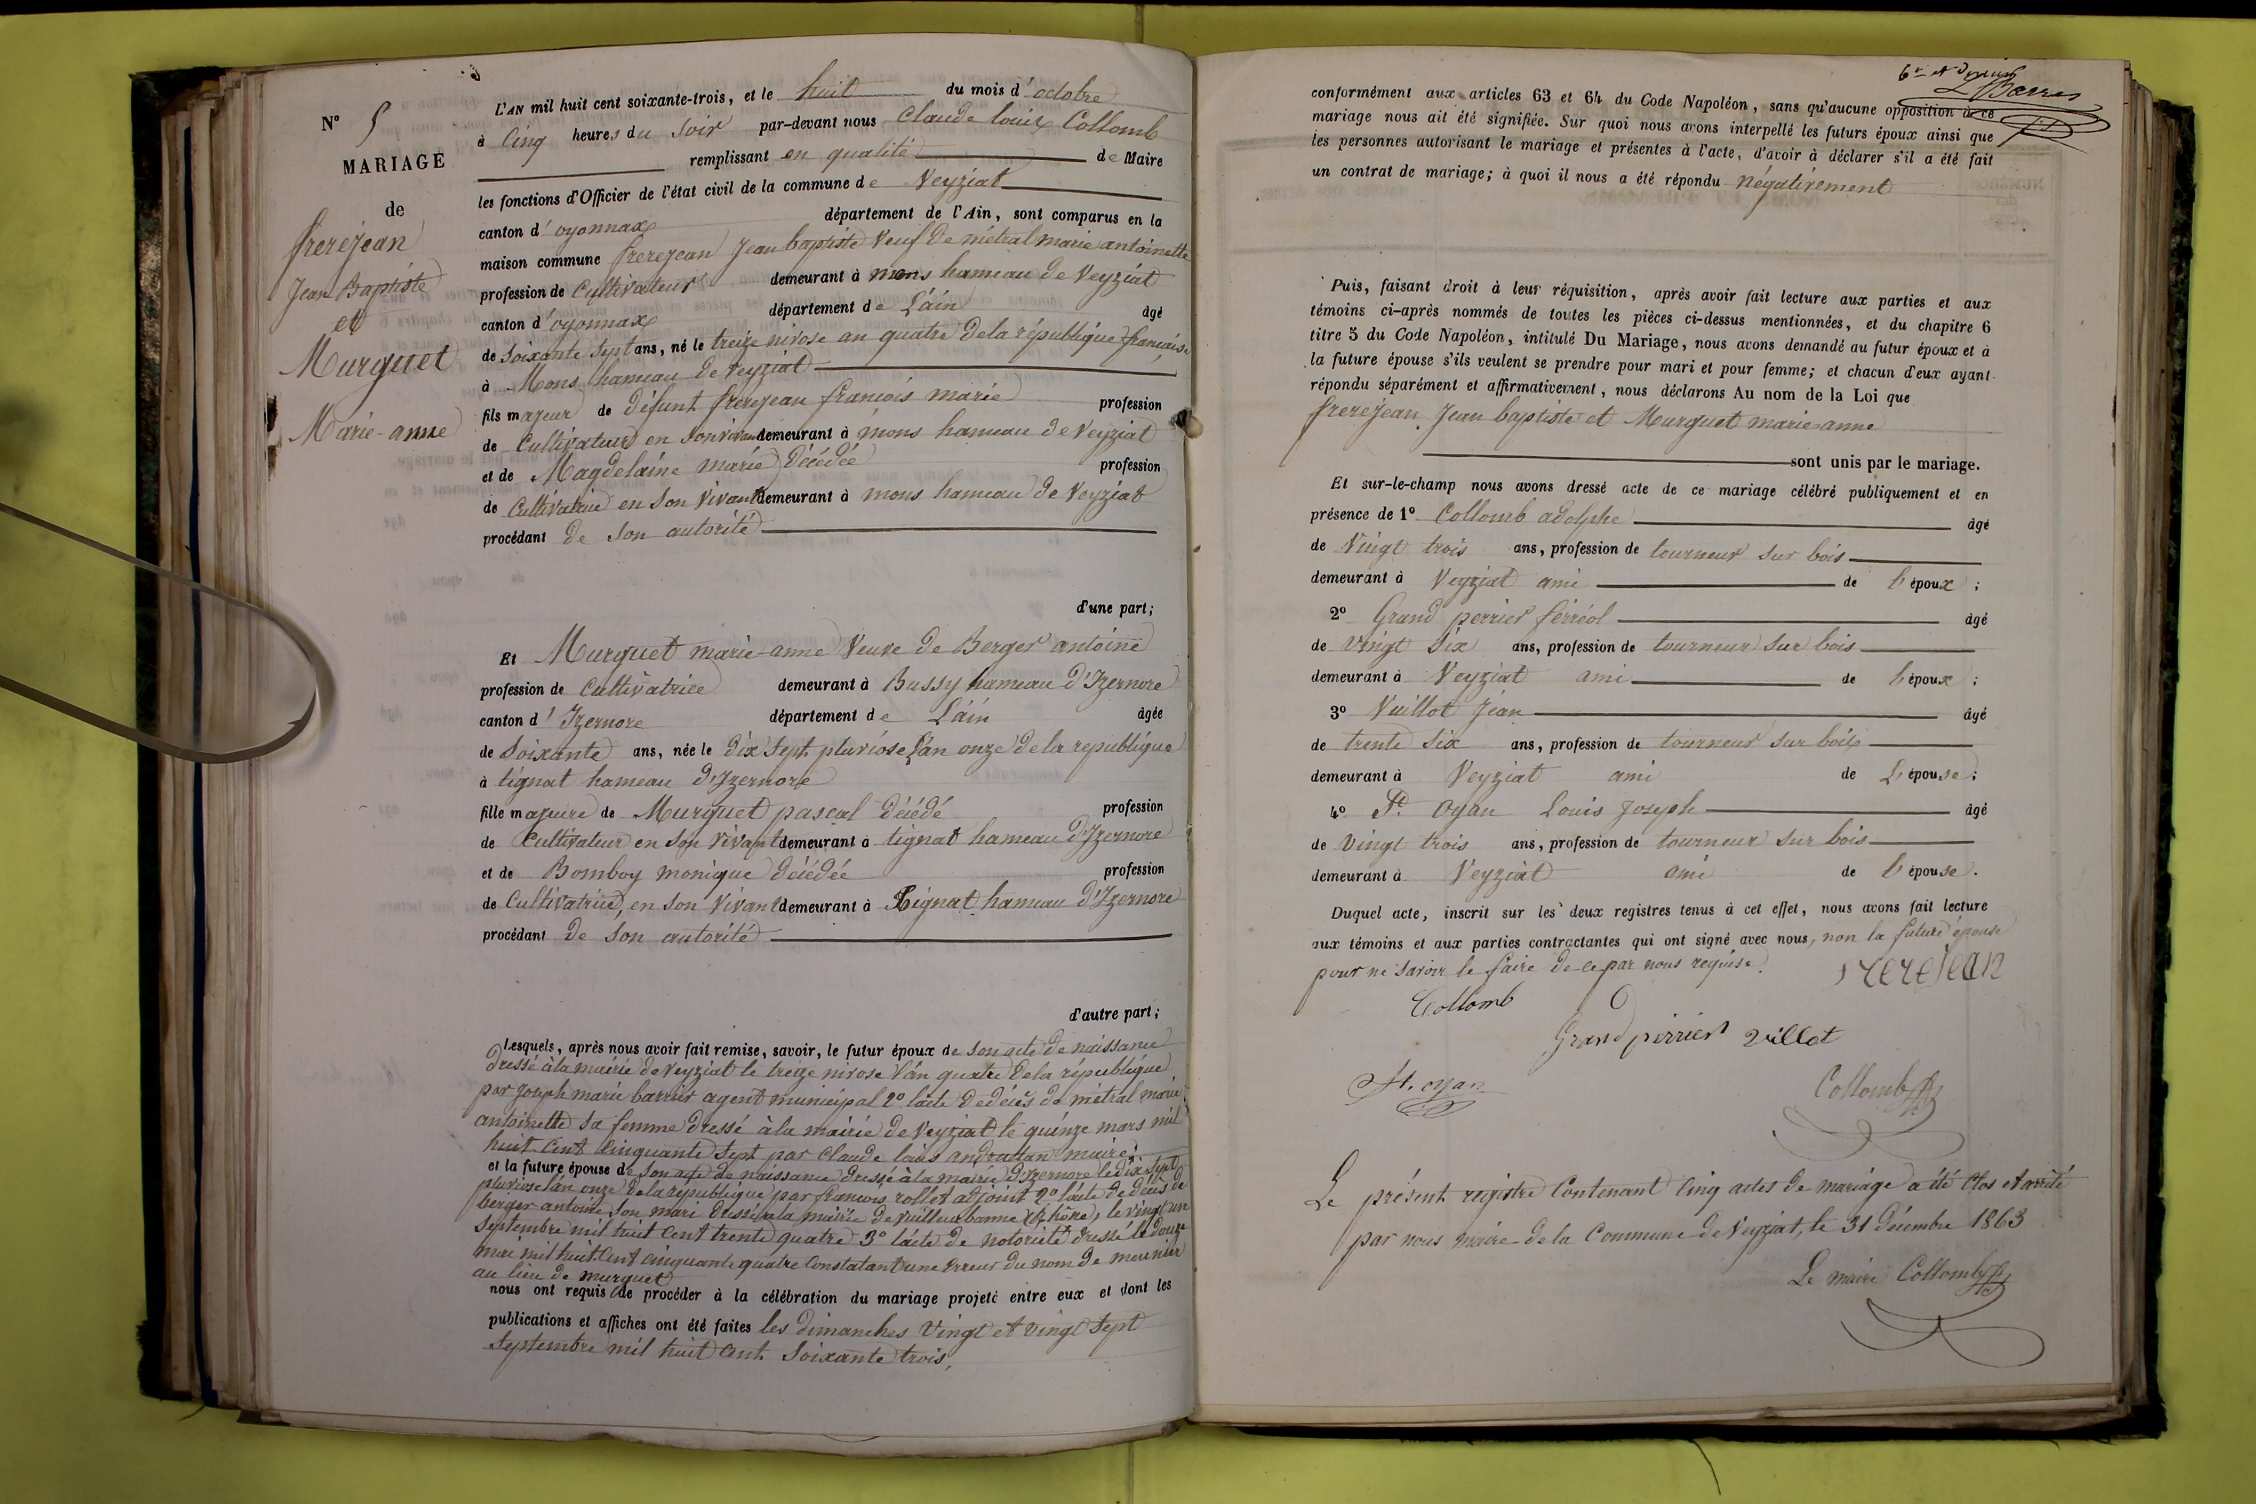 N° 5
MARIAGE
de
frerejean
Jean Baptiste
et
Murguet
Marie-anne
L'AN mil huit cent soixante-trois, et le huit du mois d'octobre
à Cinq heures du soir par-devant nous Claude louis Collomb
remplissant en qualité de Maire
les fonctions d'Officier de l'état civil de la commune de Veyziat
canton d'oyonnax département de l'Ain, sont comparus en la
maison commune frerejean Jean baptiste Veuf de métral marie antoinette
profession de Cultivateur demeurant à mons hameau de Veyziat
canton d'oyonnax département de L'ain âgé
de Soixante Sept ans, né le treize nivose an quatre de la république française
à Mons hameau de Veyziat
fils majeur de défunt frerejean françois marie profession
de Cultivateur en son vivant demeurant à mons hameau de Veyziat
et de Magdelaine marie décédée profession
de Cultivatrice en Son Vivant demeurant à mons hameau de Veyziat
procédant de Son autorité
d'une part;
Et Murguet marie-anne Veuve de Berger antoine
profession de Cultivatrice demeurant à Bussy hameau d'Izernore
canton d'Izernore département de L'ain âgée
de Soixante ans, née le dix Sept pluviose l'an onze de la république
à tignat hameau d'Izernore
fille majeure de Murguet pascal décédé profession
de Cultivateur en Son Vivant demeurant à tignat hameau d'Izernore
et de Bomboy monique décédée profession
de Cultivatrice, en Son Vivant demeurant à tignat hameau d'Izernore
procédant de Son autorité
d'autre part;
Lesquels, après nous avoir fait remise, savoir, le futur époux de Son acte de naissance
dressé à la mairie de Veyziat le treize nivose l'an quatre de la république
par Joseph marie barrier agent municipal 2° l'acte de décès de métral marie
antoinette Sa femme dressé à la mairie de Veyziat le quinze mars mil
huit cent cinquante Sept par Claude louis maire;
et la future épouse de Son acte de naissance dressé à la mairie d'Izernore le dix Sept
pluviose l'an onze de la république par françois rollet adjoint 2° l'acte de décès de
berger antoine Son mari dressé à la mairie de Vuilleurbanne (Rhône), le vingt un
Septembre mil huit cent trente quatre 3° l'acte de notoriété dressé le douze
mai mil huit cent cinquante quatre Constatant une erreur du nom de meunier
au lieu de murguet
nous ont requis de procéder à la célébration du mariage projeté entre eux et dont les
publications et affiches ont été faites les dimanches Vingt et vingt Sept
Septembre mil huit cent Soixante trois,
6e et dernier
Barres
conformément aux articles 63 et 64 du Code Napoléon, sans qu'aucune opposition à ce
mariage nous ait été signifiée. Sur quoi nous avons interpellé les futurs époux ainsi que
les personnes autorisant le mariage et présentes à l'acte, d'avoir à déclarer s'il a été fait
un contrat de mariage; à quoi il nous a été répondu négativement
Puis, faisant droit à leur réquisition, après avoir fait lecture aux parties et aux
témoins ci-après nommés de toutes les pièces ci-dessus mentionnées, et du chapitre 6
titre 5 du Code Napoléon, intitulé Du Mariage, nous avons demandé au futur époux et à
la future épouse s'ils veulent se prendre pour mari et pour femme; et chacun d'eux ayant
répondu séparément et affirmativement, nous déclarons Au nom de la Loi que
frerejean Jean baptiste et Murguet marie-anne
sont unis par le mariage.
Et sur-le-champ nous avons dressé acte de ce mariage célébré publiquement et en
présence de 1° Collomb adolphe âgé
de Vingt trois ans, profession de tourneur sur bois
demeurant à Veyziat ami de l'époux;
2° Grand perrier ferréol âgé
de vingt Six ans, profession de tourneur sur bois
demeurant à Veyziat ami de l'époux;
3° Vuillot Jean âgé
de trente Six ans, profession de tourneur sur bois
demeurant à Veyziat ami de L'épouse;
4° St. Oyan Louis Joseph âgé
de Vingt trois ans, profession de tourneur sur bois
demeurant à Veyziat ami de l'épouse.
Duquel acte, inscrit sur les deux registres tenus à cet effet, nous avons fait lecture
aux témoins et aux parties contractantes qui ont signé avec nous, non la future épouse
pour ne savoir le faire de ce par nous requise.
frerejean
Collomb
Grand perrier villot
St. oyan
Collomb
Le présent registre Contenant Cinq actes de mariage a été clos et arrêté
par nous maire de la Commune de Veyziat, le 31 décembre 1863
Le maire Collomb